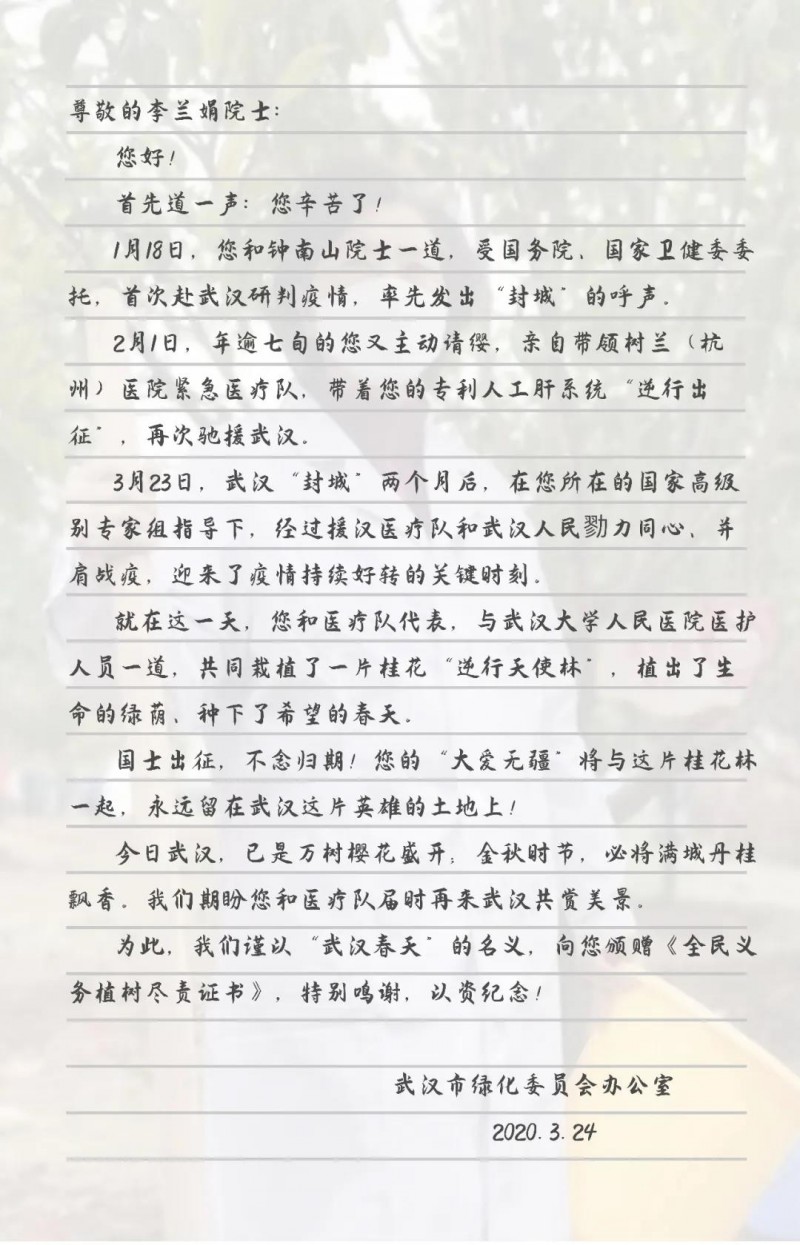 尊敬的李兰娟院士：
您好！
首先道一声：您辛苦了！
1月18日，您和钟南山院士一道，受国务院、国家卫健委委
托，首次赴武汉研判疫情，率先发出“封城”的呼声。
2月1日，年逾七旬的您又主动请缨，亲自带领树兰（杭
州）医院紧急医疗队，带着您的专利人工肝系统“逆行出
征”，再次驰援武汉。
3月23日，武汉“封城”两个月后，在您所在的国家高级
别专家组指导下，经过援汉医疗队和武汉人民勠力同心、并
肩战疫，迎来了疫情持续好转的关键时刻。
就在这一天，您和医疗队代表，与武汉大学人民医院医护
人员一道，共同栽植了一片桂花“逆行天使林”，植出了生
命的绿荫、种下了希望的春天。
国士出征，不念归期！您的“大爱无疆”将与这片桂花林
一起，永远留在武汉这片英雄的土地上！
今日武汉，已是万树樱花盛开；金秋时节，必将满城丹桂
飘香。我们期盼您和医疗队届时再来武汉共赏美景。
为此，我们谨以“武汉春天”的名义，向您颁赠《全民义
务植树尽责证书》，特别鸣谢，以资纪念！
武汉市绿化委员会办公室
2020.3.24